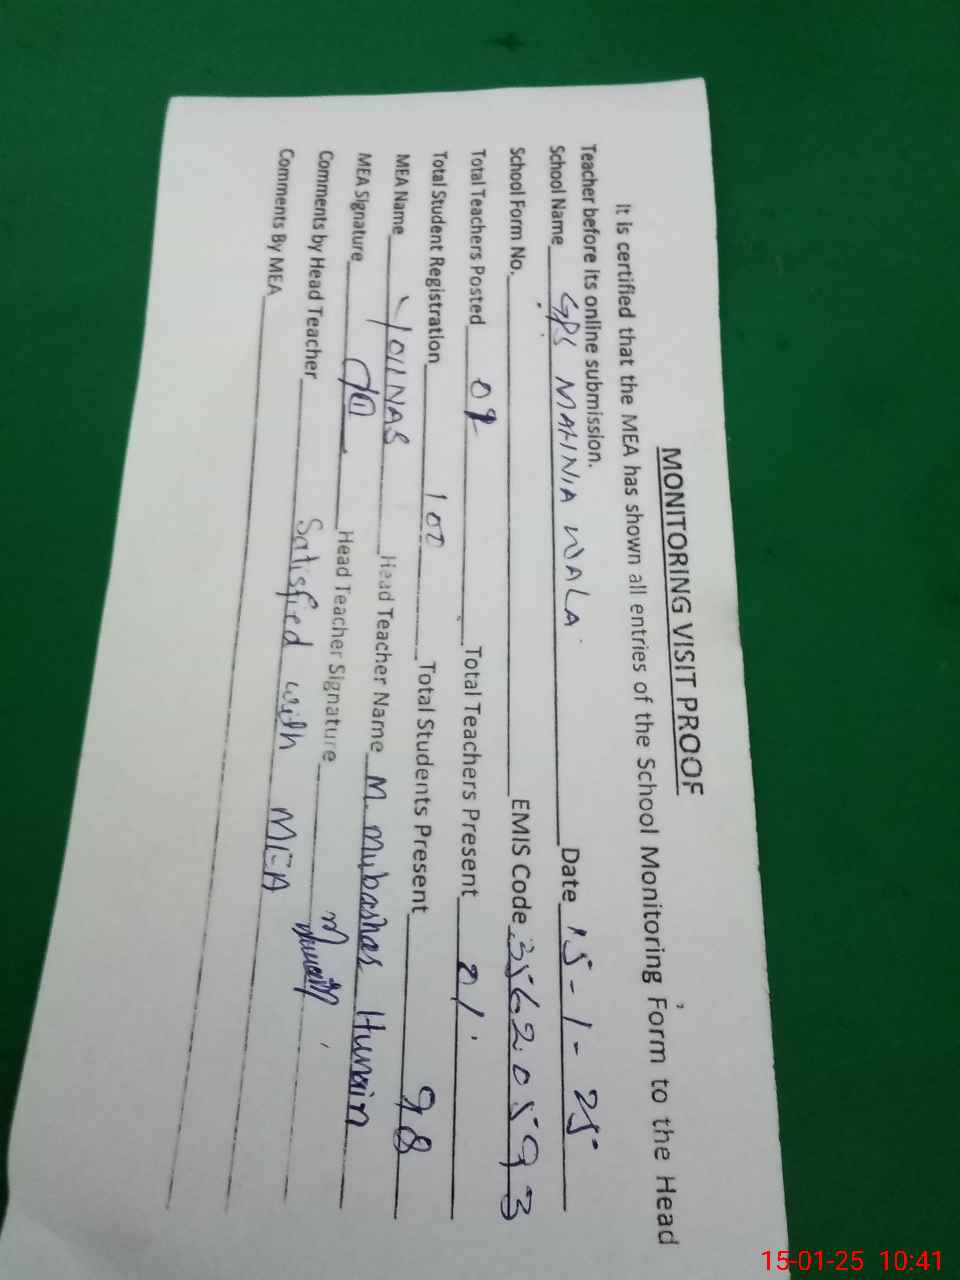 MONITORING VISIT PROOF
It is certified that the MEA has shown all entries of the School Monitoring Form to the Head
Teacher before its online submission.
School Name GPS MAHNIA WALA Date 15-1-25
School Form No. EMIS Code 35620593
Total Teachers Posted Total Teachers Present 01
Total Student Registration 100 Total Students Present 98
MEA Name YOUNAS Head Teacher Name M. Mubashar Hunain
MEA Signature Head Teacher Signature
Comments by Head Teacher Satisfied with MEA
Comments By MEA
15-01-25 10:41